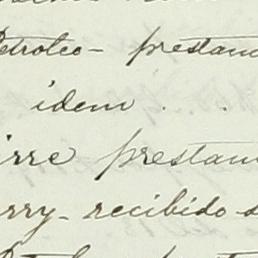 Petroleo - prestam
idem . .
irre prestam
rry - recibido